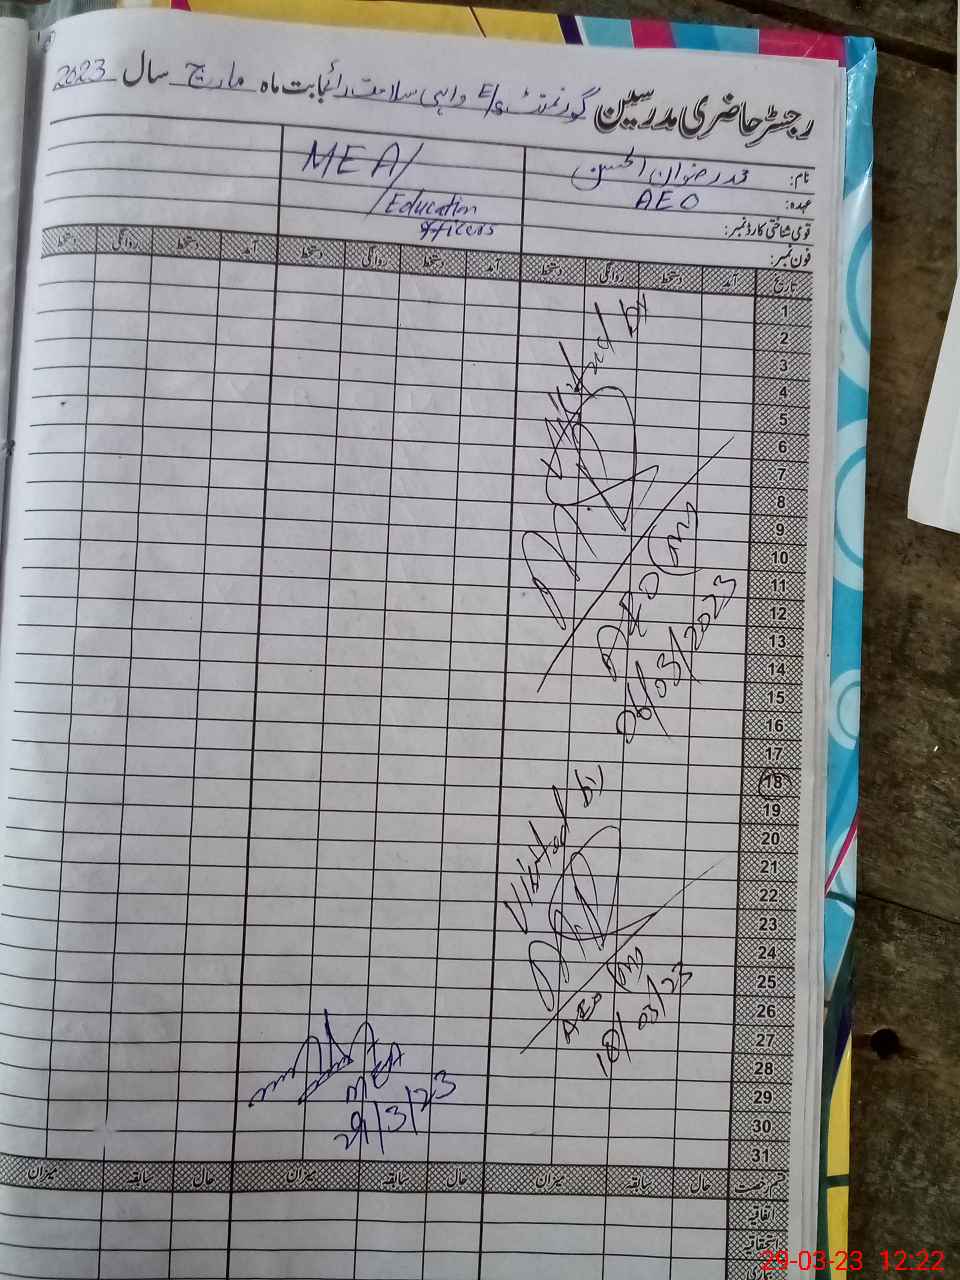 رجسٹر حاضری مدرسین گورنمنٹ E/S واہی سلامت رائے بابت ماہ مارچ سال 2023
نام: محمد رضوان الحسن
عہدہ: AEO
قومی شناختی کارڈ نمبر:
فون نمبر:
MEA/
/Education
officers
تاریخ آمد دستخط روانگی دستخط آمد دستخط روانگی دستخط آمد دستخط روانگی دستخط
1
2
3
4
5
6
7
8
9
10
11
12
13
14
15
16
17
18
19
20
21
22
23
24
25
26
27
28
29
30
31
Visited by
AEO (M)
06/03/2023
Visited by
AEO (M)
18/03/23
MEA
29/3/23
قسم رخصت حال سابقہ میزان حال سابقہ میزان حال سابقہ میزان
اتفاقیہ
استحقاقیہ
بیماری
29-03-23 12:22